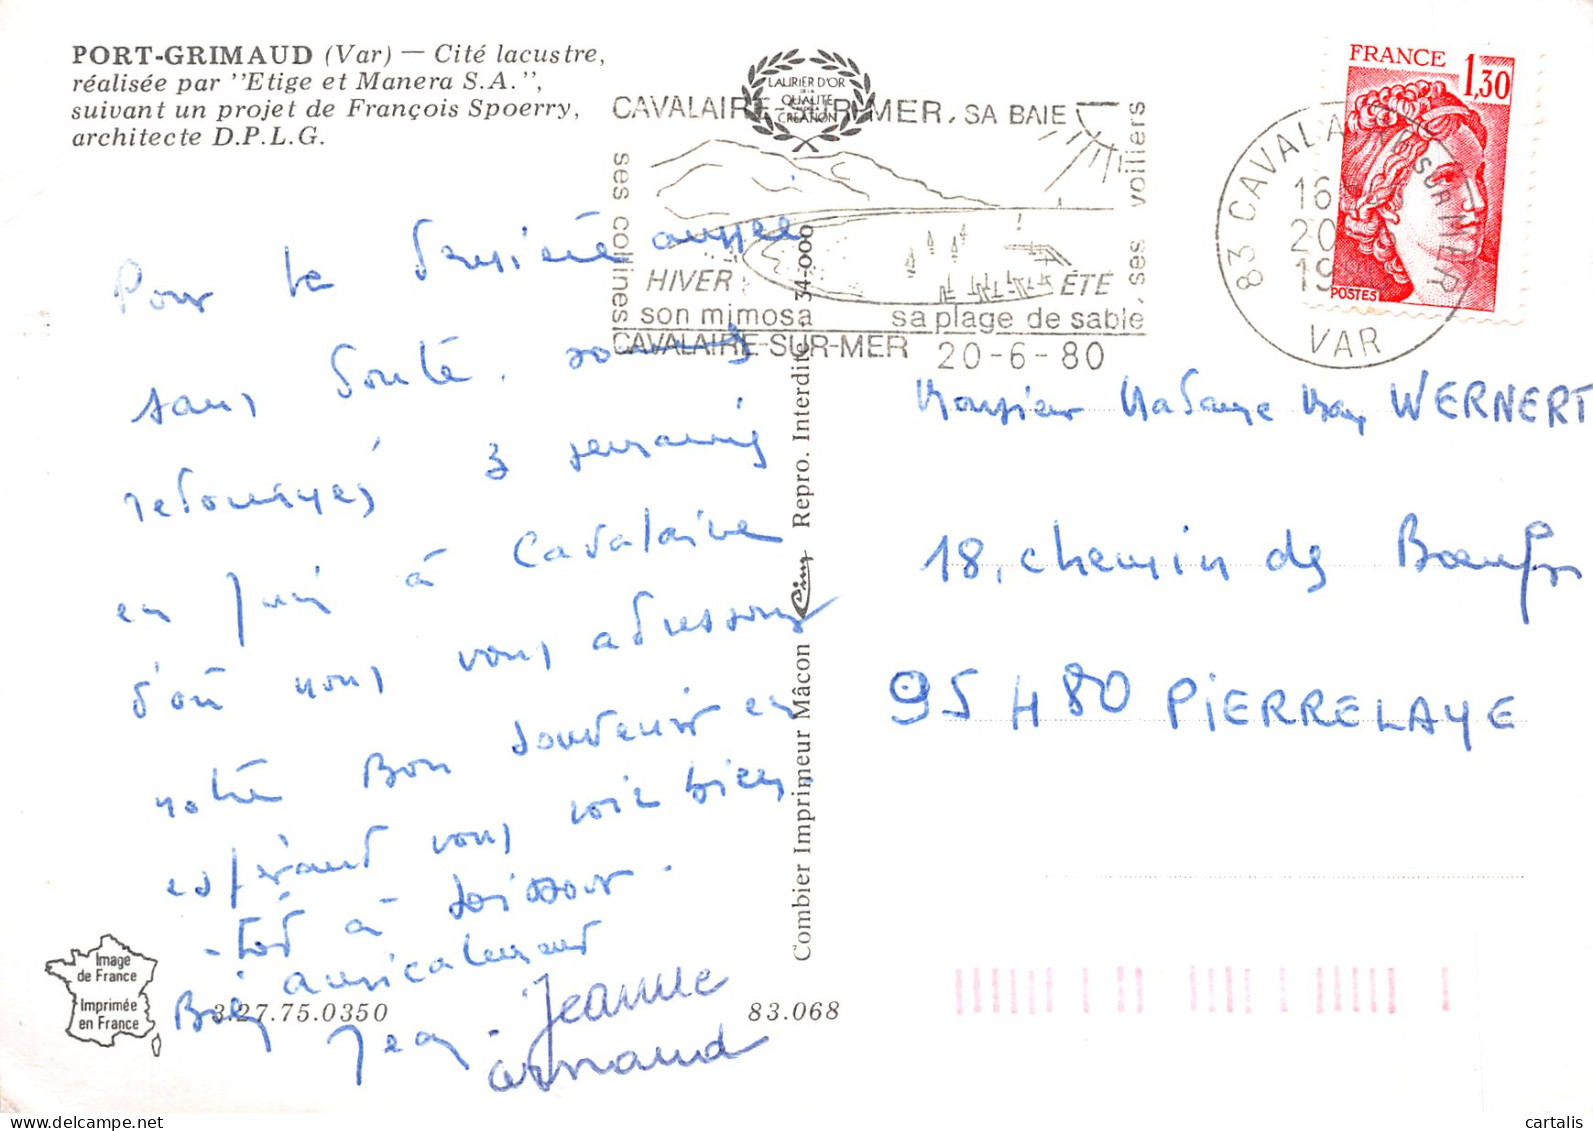 PORT-GRIMAUD (Var) — Cité lacustre,
réalisée par "Etige et Manera S.A.",
suivant un projet de François Spoerry,
architecte D.P.L.G.
LAURIER D'OR
DE LA
QUALITÉ
CRÉATION
CAVALAIRE-SUR-MER. SA BAIE
ses collines
ses voiliers
HIVER
son mimosa
ÉTÉ
sa plage de sable,
CAVALAIRE-SUR-MER 20-6-80
83 CAVALAIRE SUR MER
16
20
19
VAR
FRANCE
1,30
POSTES
Pour la dernière année
sans doute, sommes
retournés 3 semaines
en Juin à Cavalaire
d'où nous vous adressons
notre Bon souvenir en
espérant vous voir bien-
-tôt à
Bien amicalement
Jean. Jeanne
Arnaud
Monsieur Madame Max WERNERT
18, chemin des Boeufs
95480 PIERRELAYE
Combier Imprimeur Mâcon Cim Repro. Interdite 34-000
Image
de France
Imprimée
en France
3.27.75.0350
83.068
© delcampe.net
cartalis